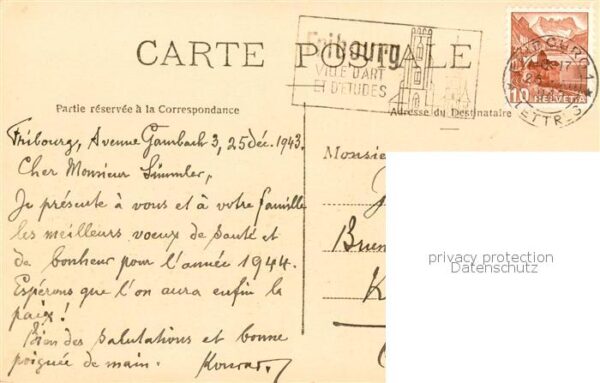 CARTE POSTALE
Fribourg
VILLE D'ART
ET D'ÉTUDES
10 HELVETIA
Partie réservée à la Correspondance
Adresse du Destinataire
Fribourg, Avenue Gambach 3, 25 déc. 1943.
Cher Monsieur Simmler,
Je présente à vous et à votre famille
les meilleurs voeux de santé et
de bonheur pour l'année 1944.
Espérons que l'on aura enfin la
paix!
Bien des salutations et bonne
poignée de main. Konrad.
Monsie
privacy protection
Datenschutz